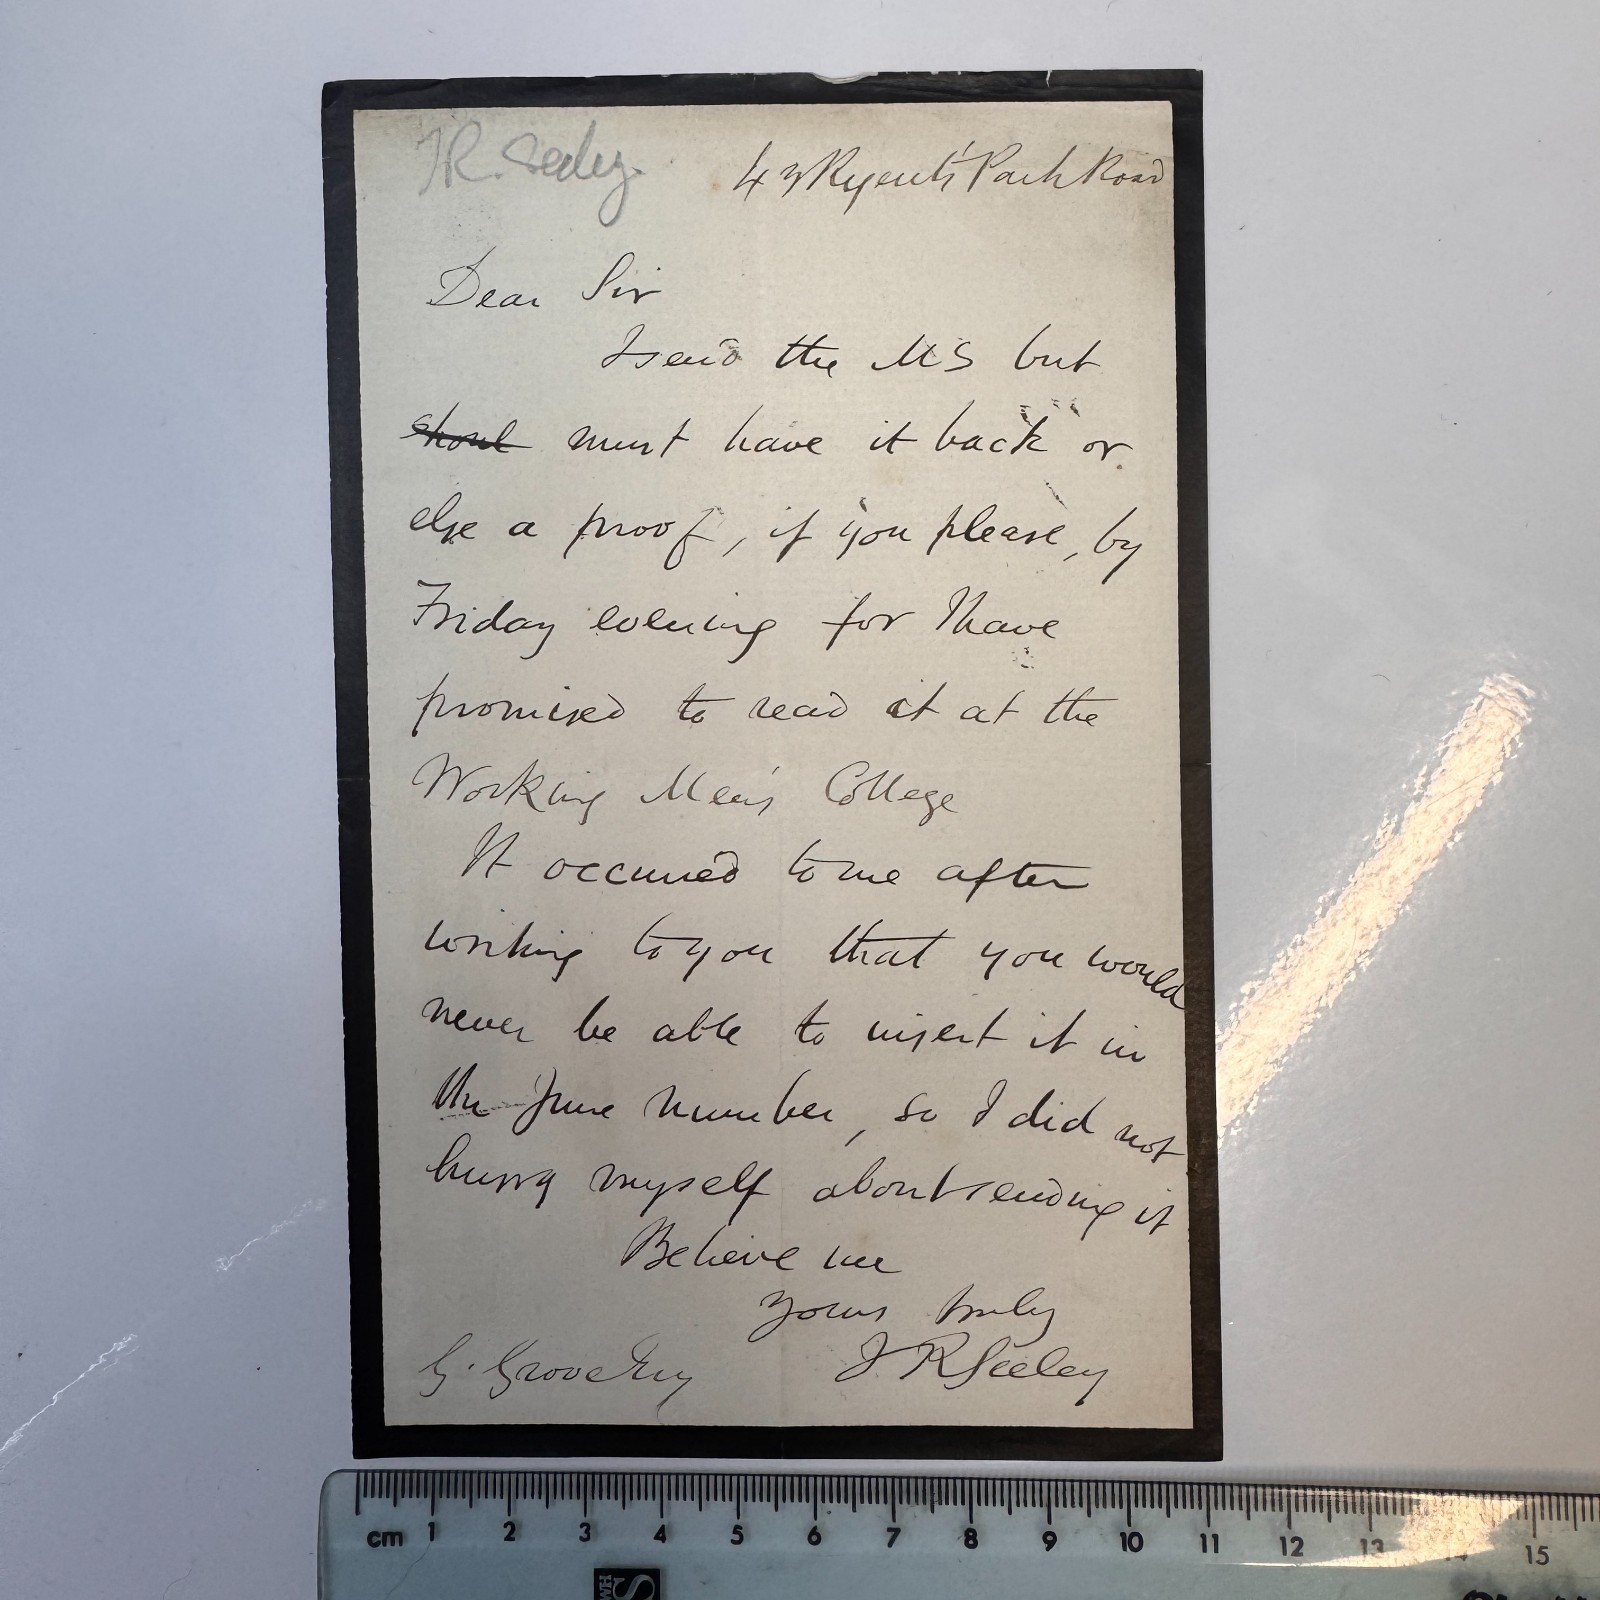 JR. Seeley.
43 Regent's Park Road
Dear Sir
I send the MS but
shoul must have it back or
else a proof, if you please, by
Friday evening for I have
promised to read it at the
Working Men's College
It occurred to me after
writing to you that you would
never be able to insert it in
the June number, so I did not
hurry myself about sending it
Believe me
yours truly
J R Seeley
G. Grove Esq
cm 1 2 3 4 5 6 7 8 9 10 11 12 13 14 15